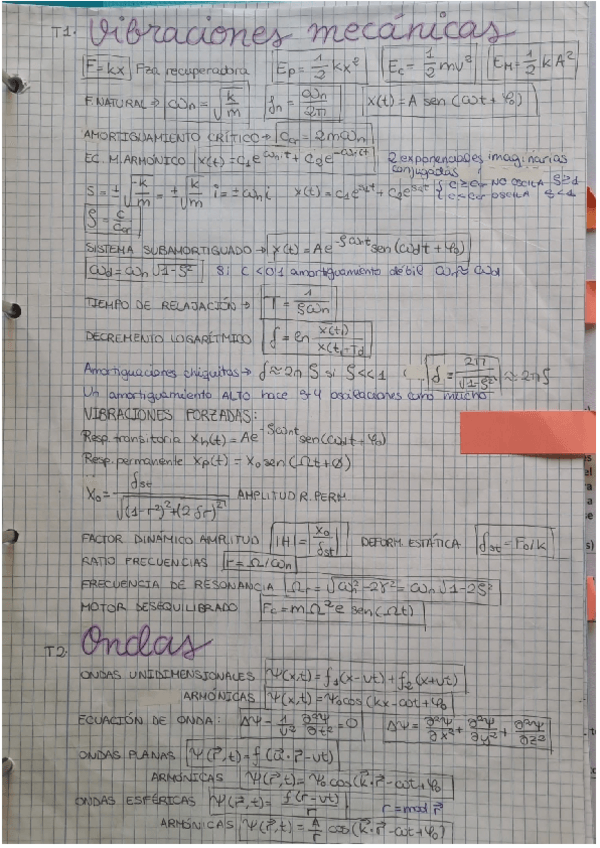 T1. Vibraciones mecánicas
F=kx Fza recuperadora Ep=1/2 kx² Ec=1/2 mv² EM=1/2 kA²
F.NATURAL → ωn=√(k/m) fn=ωn/2π x(t)=A sen(ωt+φ₀)
AMORTIGUAMIENTO CRÍTICO → Ccr=2mωn
EC. M. ARMÓNICO x(t)=C₁e^(-ωn i t)+C₂e^(-ωn i t) 2 exponenciales imaginarias conjugadas
S=±√(-k/m)=±√(k/m) i=±ωn i x(t)=C₁e^(s₁t)+C₂e^(s₂t) { C≥Ccr NO OSCILA ξ≥1
{ C<Ccr OSCILA ξ<1
ξ=C/Ccr
SISTEMA SUBAMORTIGUADO → x(t)=Ae^(-ξωnt) sen(ωdt+φ₀)
ωd=ωn√(1-ξ²) Si C<0'1 amortiguamiento débil ωn≈ωd
TIEMPO DE RELAJACIÓN → T=1/(ξωn)
DECREMENTO LOGARÍTMICO δ=ln x(t₁)/x(t₁+Td)
Amortiguaciones chiquitas → δ≈2π ξ si ξ<<1 δ=2π/√(1-ξ²) ≈2πξ
Un amortiguamiento ALTO hace 3-4 oscilaciones como mucho
VIBRACIONES FORZADAS:
Resp. transitoria xh(t)=Ae^(-ξωnt) sen(ωdt+φ₀)
Resp. permanente xp(t)=X₀ sen(Ωt+ø)
X₀=δst/√((1-r²)²+(2ξr)²) AMPLITUD R. PERM.
FACTOR DINÁMICO AMPLITUD |H|=X₀/δst DEFORM. ESTÁTICA δst=F₀/k
RATIO FRECUENCIAS r=Ω/ωn
FRECUENCIA DE RESONANCIA Ωr=√(ωn²-2γ²)=ωn√(1-2ξ²)
MOTOR DESEQUILIBRADO Fc=mΩ²e sen(Ωt)
T2. Ondas
ONDAS UNIDIMENSIONALES Ψ(x,t)=f₁(x-vt)+f₂(x+vt)
ARMÓNICAS Ψ(x,t)=Ψ₀cos(kx-ωt+φ₀)
ECUACIÓN DE ONDA: ΔΨ-1/v² ∂²Ψ/∂t²=0 ΔΨ=∂²Ψ/∂x²+∂²Ψ/∂y²+∂²Ψ/∂z²
ONDAS PLANAS Ψ(r⃗,t)=f(u⃗·r⃗-vt)
ARMÓNICAS Ψ(r⃗,t)=Ψ₀cos(k⃗·r⃗-ωt+φ₀
ONDAS ESFÉRICAS Ψ(r⃗,t)=f(r-vt)/r r=mod r⃗
ARMÓNICAS Ψ(r⃗,t)=A/r cos(k⃗·r⃗-ωt+φ₀)